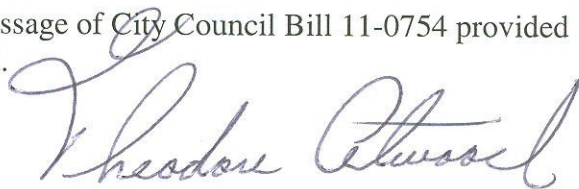 ssage of City Council Bill 11-0754 provided
.
Theodore Atwood